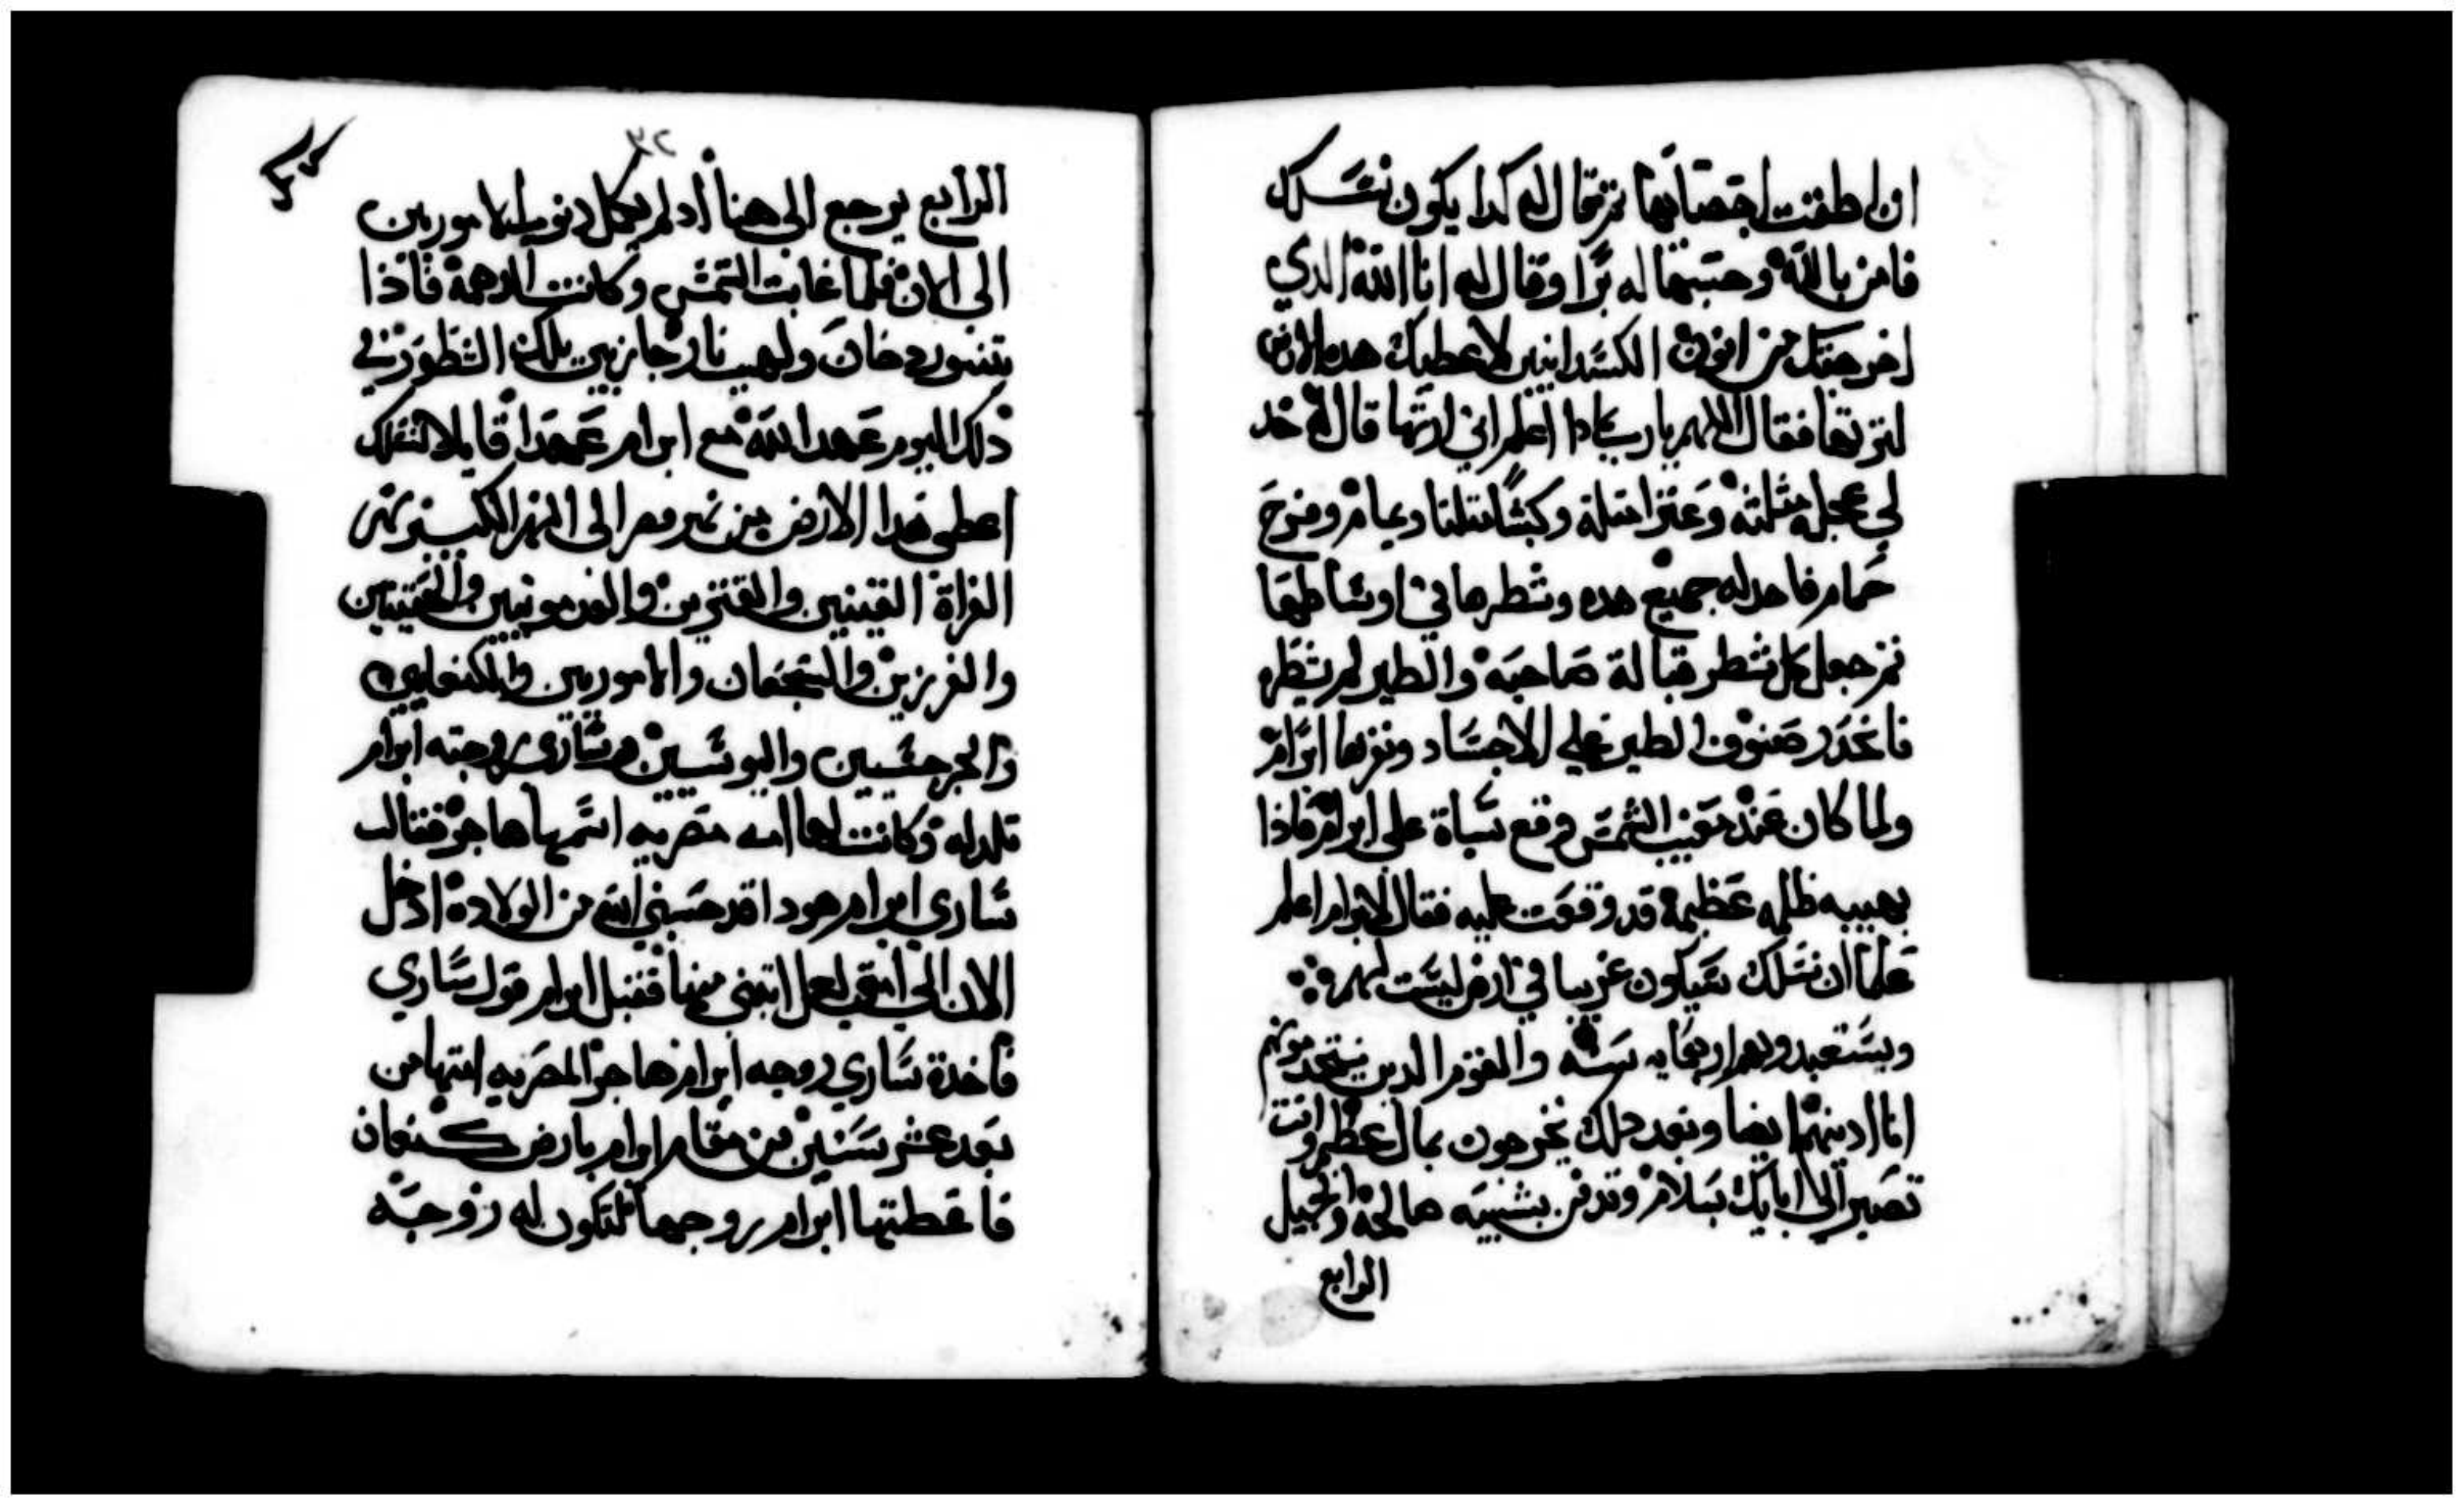 ان اطقت احصايها ثم قال له كدا يكون نسلك
فامن بالله وحسبها له برا وقال له انا الله الدي
اخرجتك من اتون الكسدانيين لاعطيك هده الارض
لترتها فقال اللهم يارب بمادا اعلم اني ارتها قال له خد
لي عجله مثلثه وعنزا مثلثة وكبشا مثلثا ويمام وفرخ
حمام فاخد له جميع هده وشطرها في اوساطها
ثم جعل كل شطر قبالة صاحبه والطير لم يشطره
فانحدر صنوف الطير علي الاجساد ونفرها ابرام
ولما كان عند مغيب الشمس وقع سباة علي ابرام فاذا
بهيبه ظلمه عظيمة قد وقعت عليه فقال لابرام اعلم
علما ان نسلك سيكون غريبا في ارض ليست لهم
ويستعبدوهم اربعمايه سنه والقوم الدين يستخدمونهم
انا ادينهم ايضا وبعد دلك يخرجون بمال عظيم وانت
تصير الي ابايك بسلام وتدفن بشيبه صالحة والجيل
الرابع
٣٢
الرابع يرجع الي هنا اد لم تكمل دنوب الامورين
الي الان فلما غابت الشمس وكانت الدهمة فاذا
بتنور دخان ولهيب نار جايزين بلك الشطور في
ذلك اليوم عهد الله مع ابرام عهدا قايلا لنسلك
اعطي هدا الارض من نهر مصر الي النهر الكبير نهر
الفراة القينيين والقنزين والقدمونيين والحيتيين
والفرزين والشجعان والامورين والكنعانيين
والجرجسيين واليوسيين وساري زوجته ابرام
تلد له وكانت لها امه مصريه اسمها هاجر فقالت
ساري ابرام هودا قد حبسني الله من الولادة ادخل
الان الي امتي لعل ابتني منها فقبل ابرام قول ساري
فاخدة ساري زوجه ابرام هاجر المصريه امتها من
بعد عشر سنين من مقام ابرام بارض كنعان
فاعطتها ابرام زوجها لتكون له زوجه